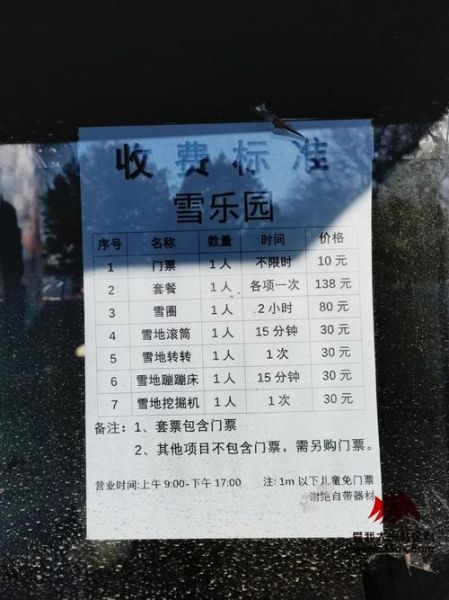 收费标准
雪乐园
序号 名称 数量 时间 价格
1 门票 1人 不限时 10元
2 套餐 1人 各项一次 138元
3 雪圈 1人 2小时 80元
4 雪地滚筒 1人 15分钟 30元
5 雪地转转 1人 1次 30元
6 雪地蹦蹦床 1人 15分钟 30元
7 雪地挖掘机 1人 1次 30元
备注：1、套票包含门票
2、其他项目不包含门票，需另购门票。
营业时间:上午 9:00-下午 17:00 注: 1m 以下儿童免门票
谢绝自带器材